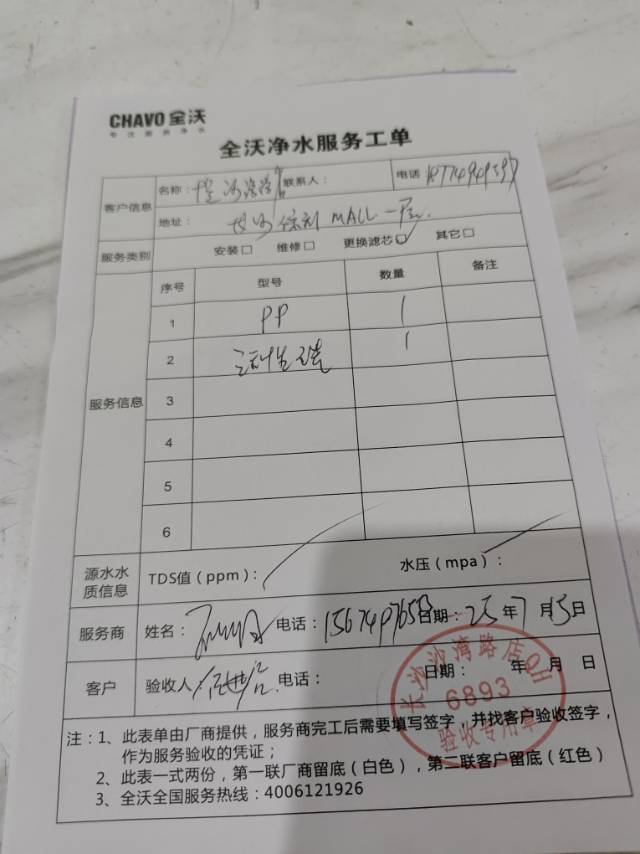 CHAVO 全沃
专注厨房净水
全沃净水服务工单
客户信息
名称： 联系人： 电话
地址： MALL一层
服务类别 安装□ 维修□ 更换滤芯☑ 其它□
服务信息
序号 型号 数量 备注
1 PP 1
2 1
3
4
5
6
源水水质信息 TDS值（ppm）： 水压（mpa）：
服务商 姓名： 电话： 日期：25年7月15日
客户 验收人 电话： 日期： 年 月 日
长沙沙湾路店QH
6893
验收专用章
注：1、此表单由厂商提供，服务商完工后需要填写签字，并找客户验收签字，
作为服务验收的凭证；
2、此表一式两份，第一联厂商留底（白色），第二联客户留底（红色）
3、全沃全国服务热线：4006121926